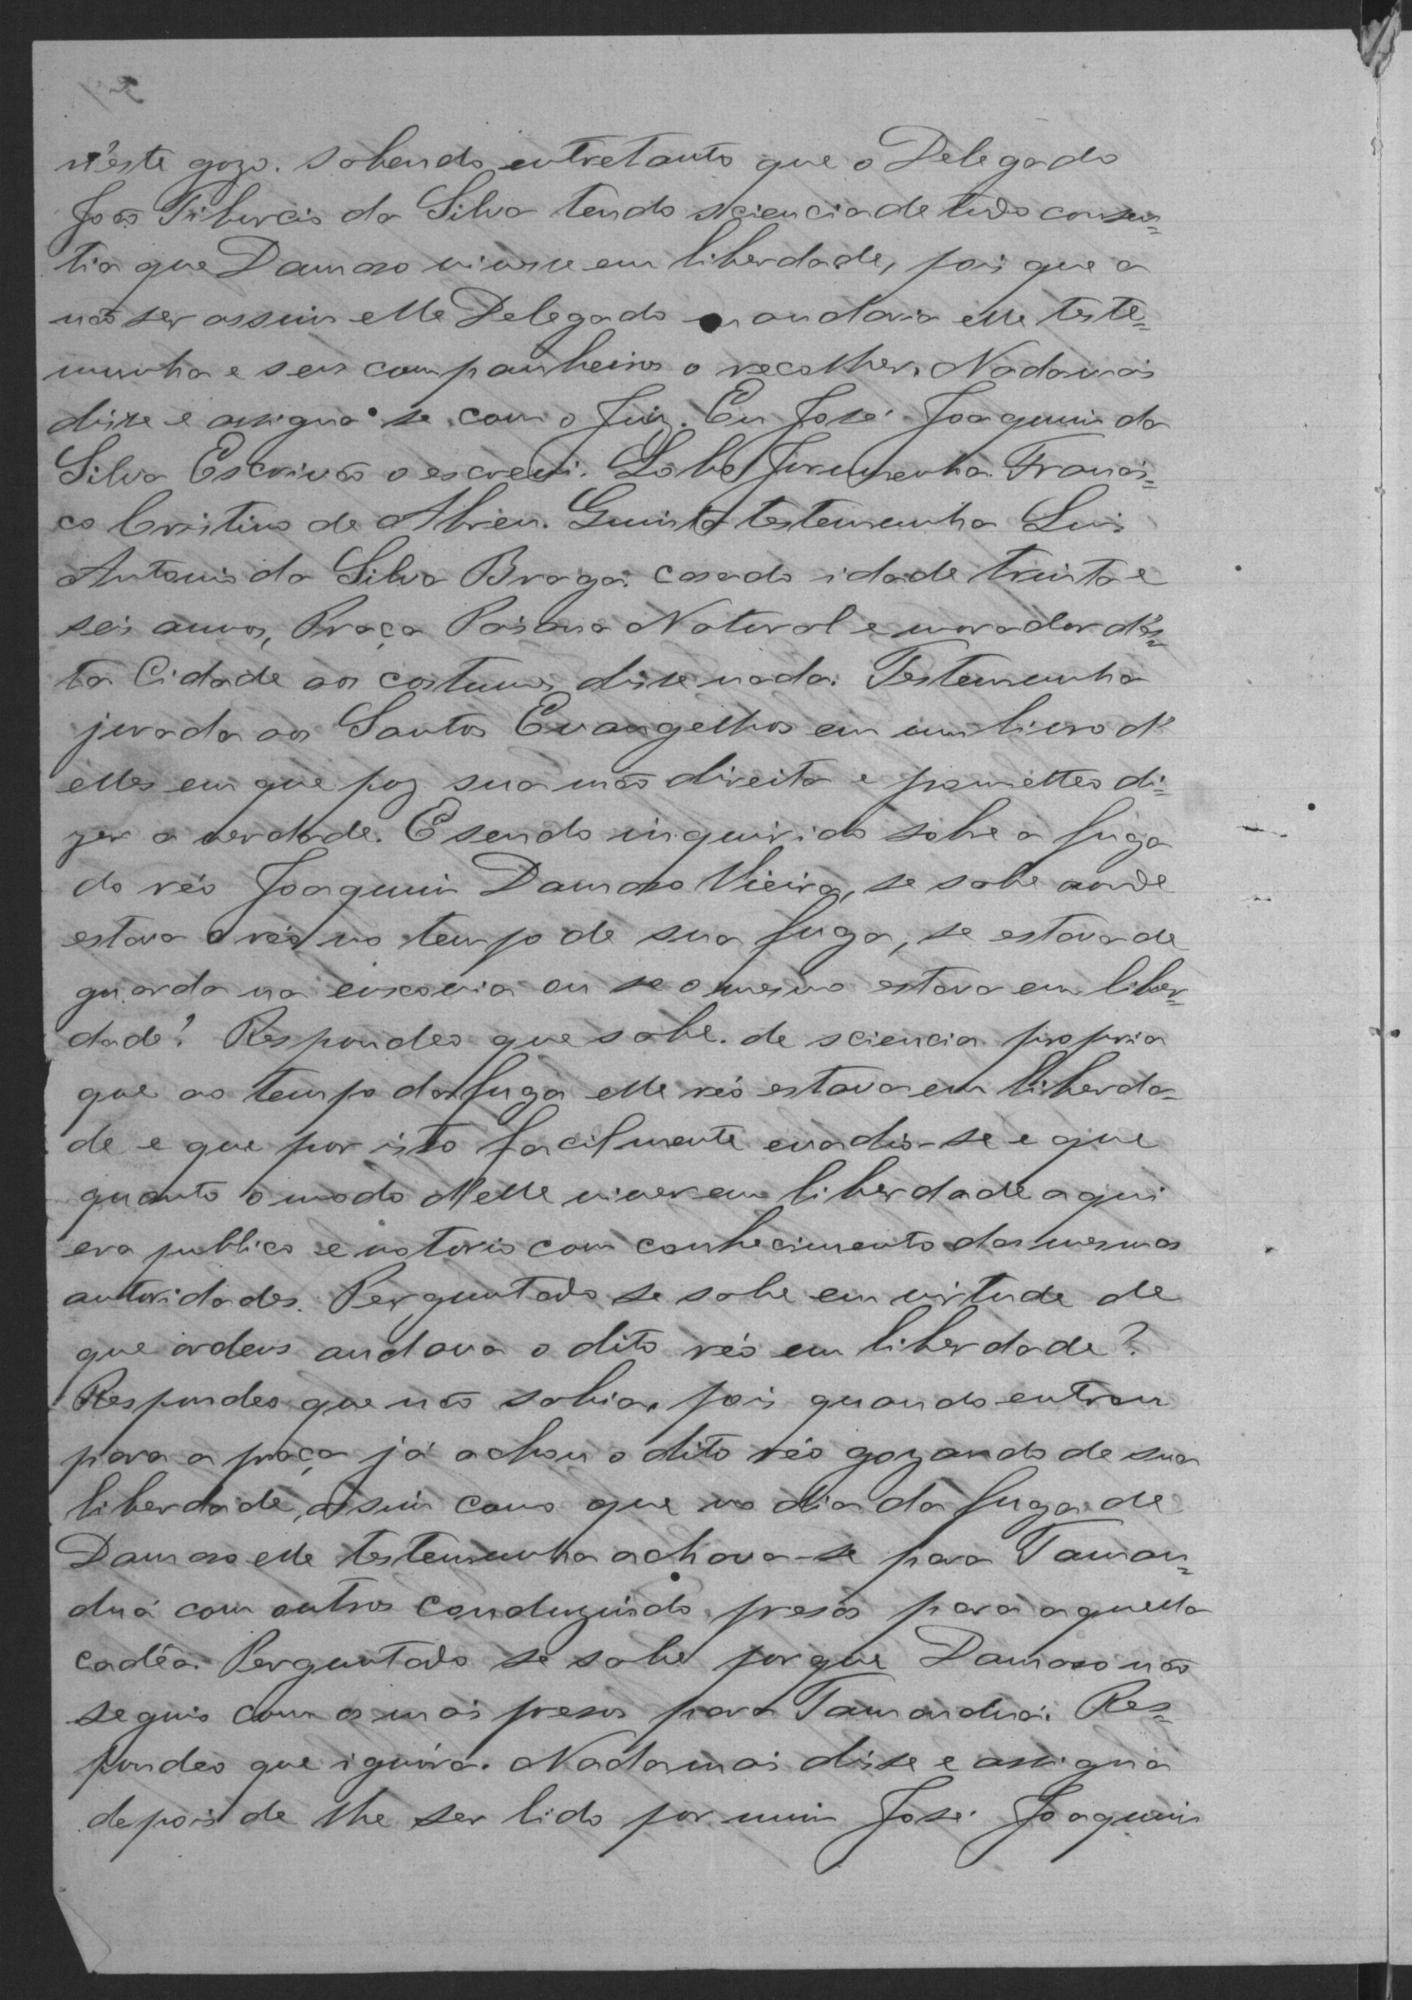 n'este gozo. Sabendo entretanto que o Delegado
João Tiburcio da Silva tendo sciencia de tudo consen=
tia que Damaso vivesse em liberdade, pois que a
não ser assim elle Delegado mandaria elle teste=
munha e seus companheiros o recolher. Nada mais
disse e assigna-se com o Juiz. Eu José Joaquim da
Silva Escrivão o escrevi. Lobo Jurumenha. Francis=
co Cristino de Abreu. Quinta testemunha Luis
Antonio da Silva Braga. casado idade trinta e
seis annos, Praça Paisana Natural e morador d'es=
ta Cidade aos costumes disse nada. Testemunha
jurada aos Santos Evangelhos em um livro d'
elles em que poz sua mão direita e prometteo di=
zer a verdade. E sendo inquirido sobre a fuga
do réo Joaquim Damaso Vieira, se sabe aonde
estava o réo no tempo de sua fuga, se estava de
guarda na enxovia ou se o mesmo estava em liber=
dade? Respondeo que sabe de sciencia propria
que ao tempo da fuga elle réo estava em liberda=
de e que por isto facilmente evadio-se e que
quanto o modo d'elle viver em liberdade aqui
era publico e notorio com conhecimento das mesmas
autoridades. Perguntado se sabe em virtude de
que ordens andava o dito réo em liberdade?
Respondeo que não sabia, pois quando entrou
para a praça já achou o dito réo gozando de sua
liberdade, assim como que no dia da fuga de
Damaso elle testemunha achava-se para Taman=
duá com outros conduzindo presos para aquella
cadêa. Perguntado se sabe porque Damaso não
seguio com os mais presos para Tamanduá. Res=
pondeo que ignóra. Nada mais disse e assigna
depois de lhe ser lido por mim José Joaquim